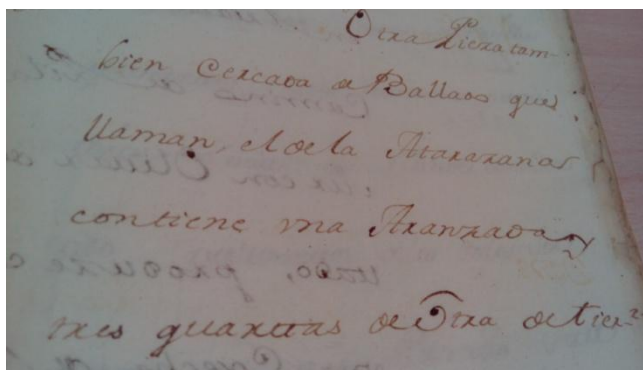 Otra Pieza tam-
bien Cercada de Ballado que
llaman, el de la Ataraxana
contiene vna Aranzada y
tres quartas de Otra de tier-